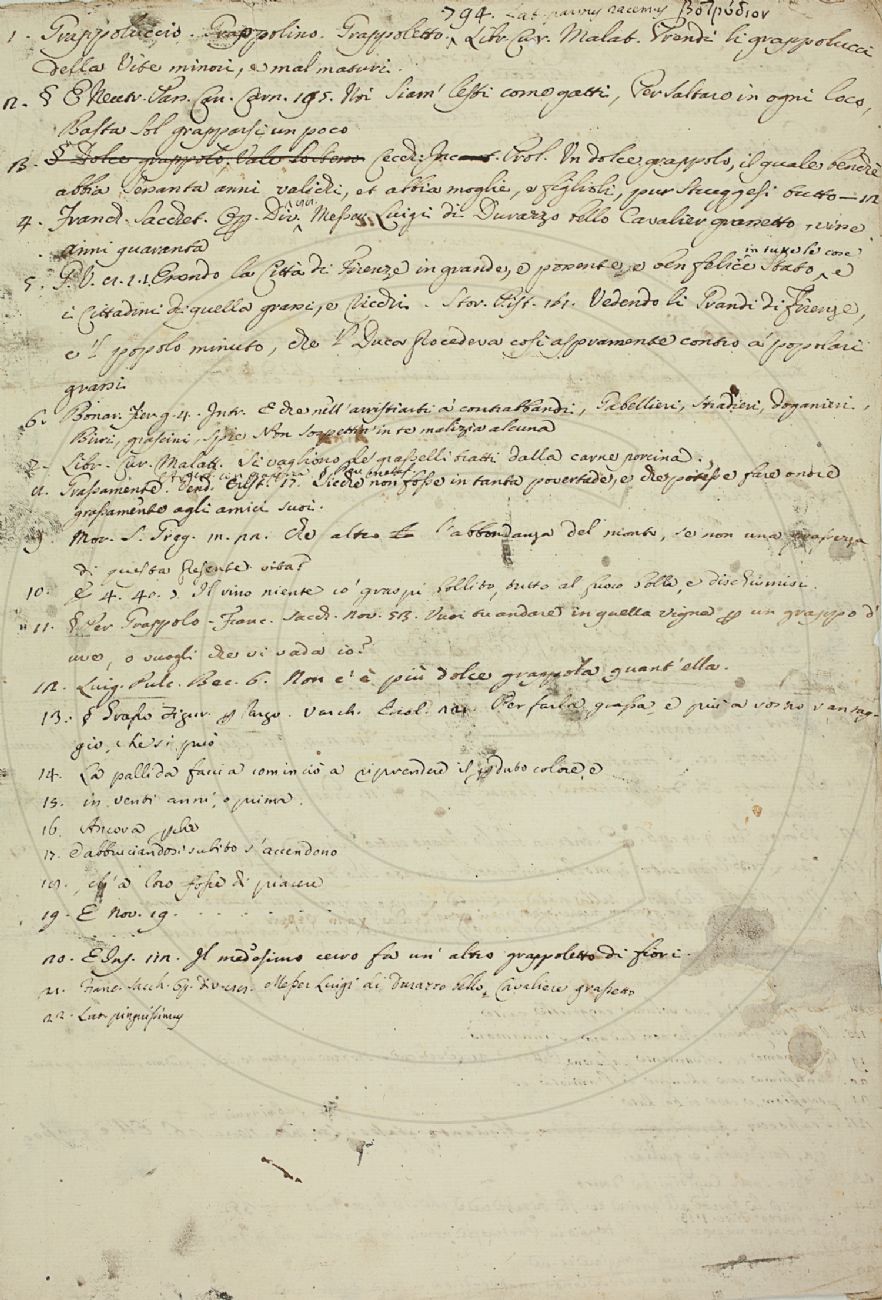 794. Lat. parvus racemus βοτρύδιον
1. Grappoluccio. Grappolino. Grappoletto. Libr. Cur. Malat. Prendi li grappolucci
della Vite minori, e mal maturi.
2. § E Neutr. Pass. Can. Carn. 195. Noi siam' lesti come gatti, Per saltare in ogni loco,
Basta sol grapparsi un poco
3. § Dolce grappolo, Vale lo stesso Cecch. Incant. Prol. Un dolce grappolo, il quale benchè
abbia sessanta anni validi, et abbia moglie, e figlioli, pur struggesi tutto
4. Franc. Sacchet. Op. Div. 91. Messer Luigi di Durazzo bello Cavalier grassetto, vive
anni quaranta
in tutte le cose
5. G. V. Essendo la Città di Firenze in grande, e possente, e ben felice stato, e
i Cittadini di quella grassi, e ricchi. Stor. Pist. 161. Vedendo li Grandi di Firenze,
e 'l popolo minuto, che 'l Duca procedeva così aspramente contro a' popolari
grassi
6. Bonar. Fier. 9. 4. Intr. E che nell' arristiarti a' contrabbandi, Gabellieri, stradieri, doganieri,
Birri, grascini, spie Non sospettin' in te malizia alcuna
7. Libr. Cur. Malatt. Si vagliono de' grasselli tratti dalla carne porcina.
8. Grassamente. Vend. Crist. 17. Sicchè non fosse in tanta povertade, e che potesse fare onore
grassamente agli amici suoi.
9. Mor. S. Greg. Che altro è l'abbondanza del mondo, se non una grassezza
di questa presente vita?
10. E 4. 40. 3. Il vino niente co' graspi bollito, tutto al fuoco bolla, e dischiumisi.
11. § Per Grappolo. Franc. Sacch. Nov. 53. Vuoi tu andare in quella vigna per un grappo d'
uve, o vuogli che vi vada io?
12. Luig. Pulc. Bec. 6. Non c'è più dolce grappola quant'ella.
13. § Grasso Figur. per largo. Varch. Ercol. Per farla grassa, e più a vostro vantag-
gio, che si può
14. La pallida faccia cominciò a riprendere il perduto colore, e
15. in venti anni, o prima.
16. Ancora perchè
17. e abbruciandosi subito s'accendono
18. , ch'a loro fosse di piacere
19. E Nov. 19. . . . . . .
20. E Ins. 112. Il medesimo cervo fa un' altro grappoletto di fiori.
21. Franc. Sacch. Op. div. Messer Luigi di Durazzo bello Cavaliere grassetto
22. Lat. pinguissimus